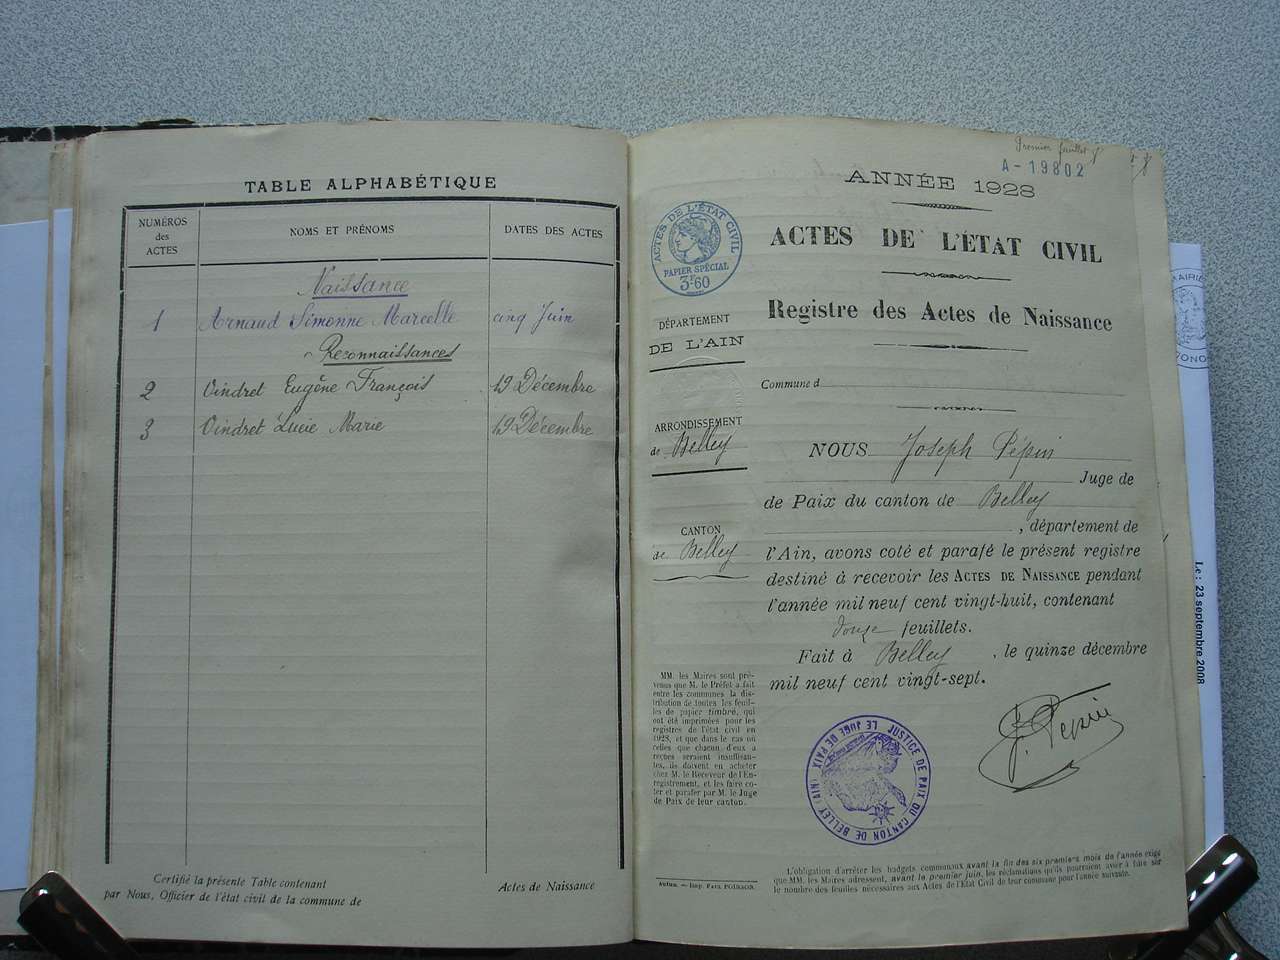 TABLE ALPHABÉTIQUE
NUMÉROS des ACTES
NOMS ET PRÉNOMS
DATES DES ACTES
Naissance
1 Arnaud Simonne Marcelle cinq Juin
Reconnaissances
2 Oindret Eugêne François 19 Décembre
3 Oindret Lucie Marie 19 Décembre
Certifié la présente Table contenant
Actes de Naissance
par Nous, Officier de l'état civil de la commune de
Premier feuillet
A-19802
ANNÉE 1928
ACTES DE L'ÉTAT CIVIL
PAPIER SPÉCIAL
3F60
ACTES DE L'ÉTAT CIVIL
Registre des Actes de Naissance
DÉPARTEMENT
DE L'AIN
Commune d
ARRONDISSEMENT
de Belley
CANTON
de Belley
NOUS Joseph Pépin
Juge de
de Paix du canton de Belley
, département de
l'Ain, avons coté et parafé le présent registre
destiné à recevoir les ACTES DE NAISSANCE pendant
l'année mil neuf cent vingt-huit, contenant
douze feuillets.
Fait à Belley, le quinze décembre
mil neuf cent vingt-sept.
J. Pépin
MM. les Maires sont pré-
venus que M. le Préfet a fait
entre les communes la dis-
tribution de toutes les feuil-
les de papier timbré, qui
ont été imprimées pour les
registres de l'état civil en
1928, et que dans le cas où
celles que chacun d'eux a
reçues seraient insuffisan-
tes, ils doivent en acheter
chez M. le Receveur de l'En-
registrement, et les faire co-
ter et parafer par M. le Juge
de Paix de leur canton.
JUSTICE DE PAIX DU CANTON DE BELLEY (AIN)
LE JUGE DE PAIX
Autun. — Imp. Paul POIRSON.
L'obligation d'arrêter les budgets communaux avant la fin des six premiers mois de l'année exige
que MM. les Maires adressent, avant le premier juin, les réclamations qu'ils pourraient avoir à faire sur
le nombre des feuilles nécessaires aux Actes de l'État Civil de leur commune pour l'année suivante.
MAIRIE
Le : 23 septembre 2008